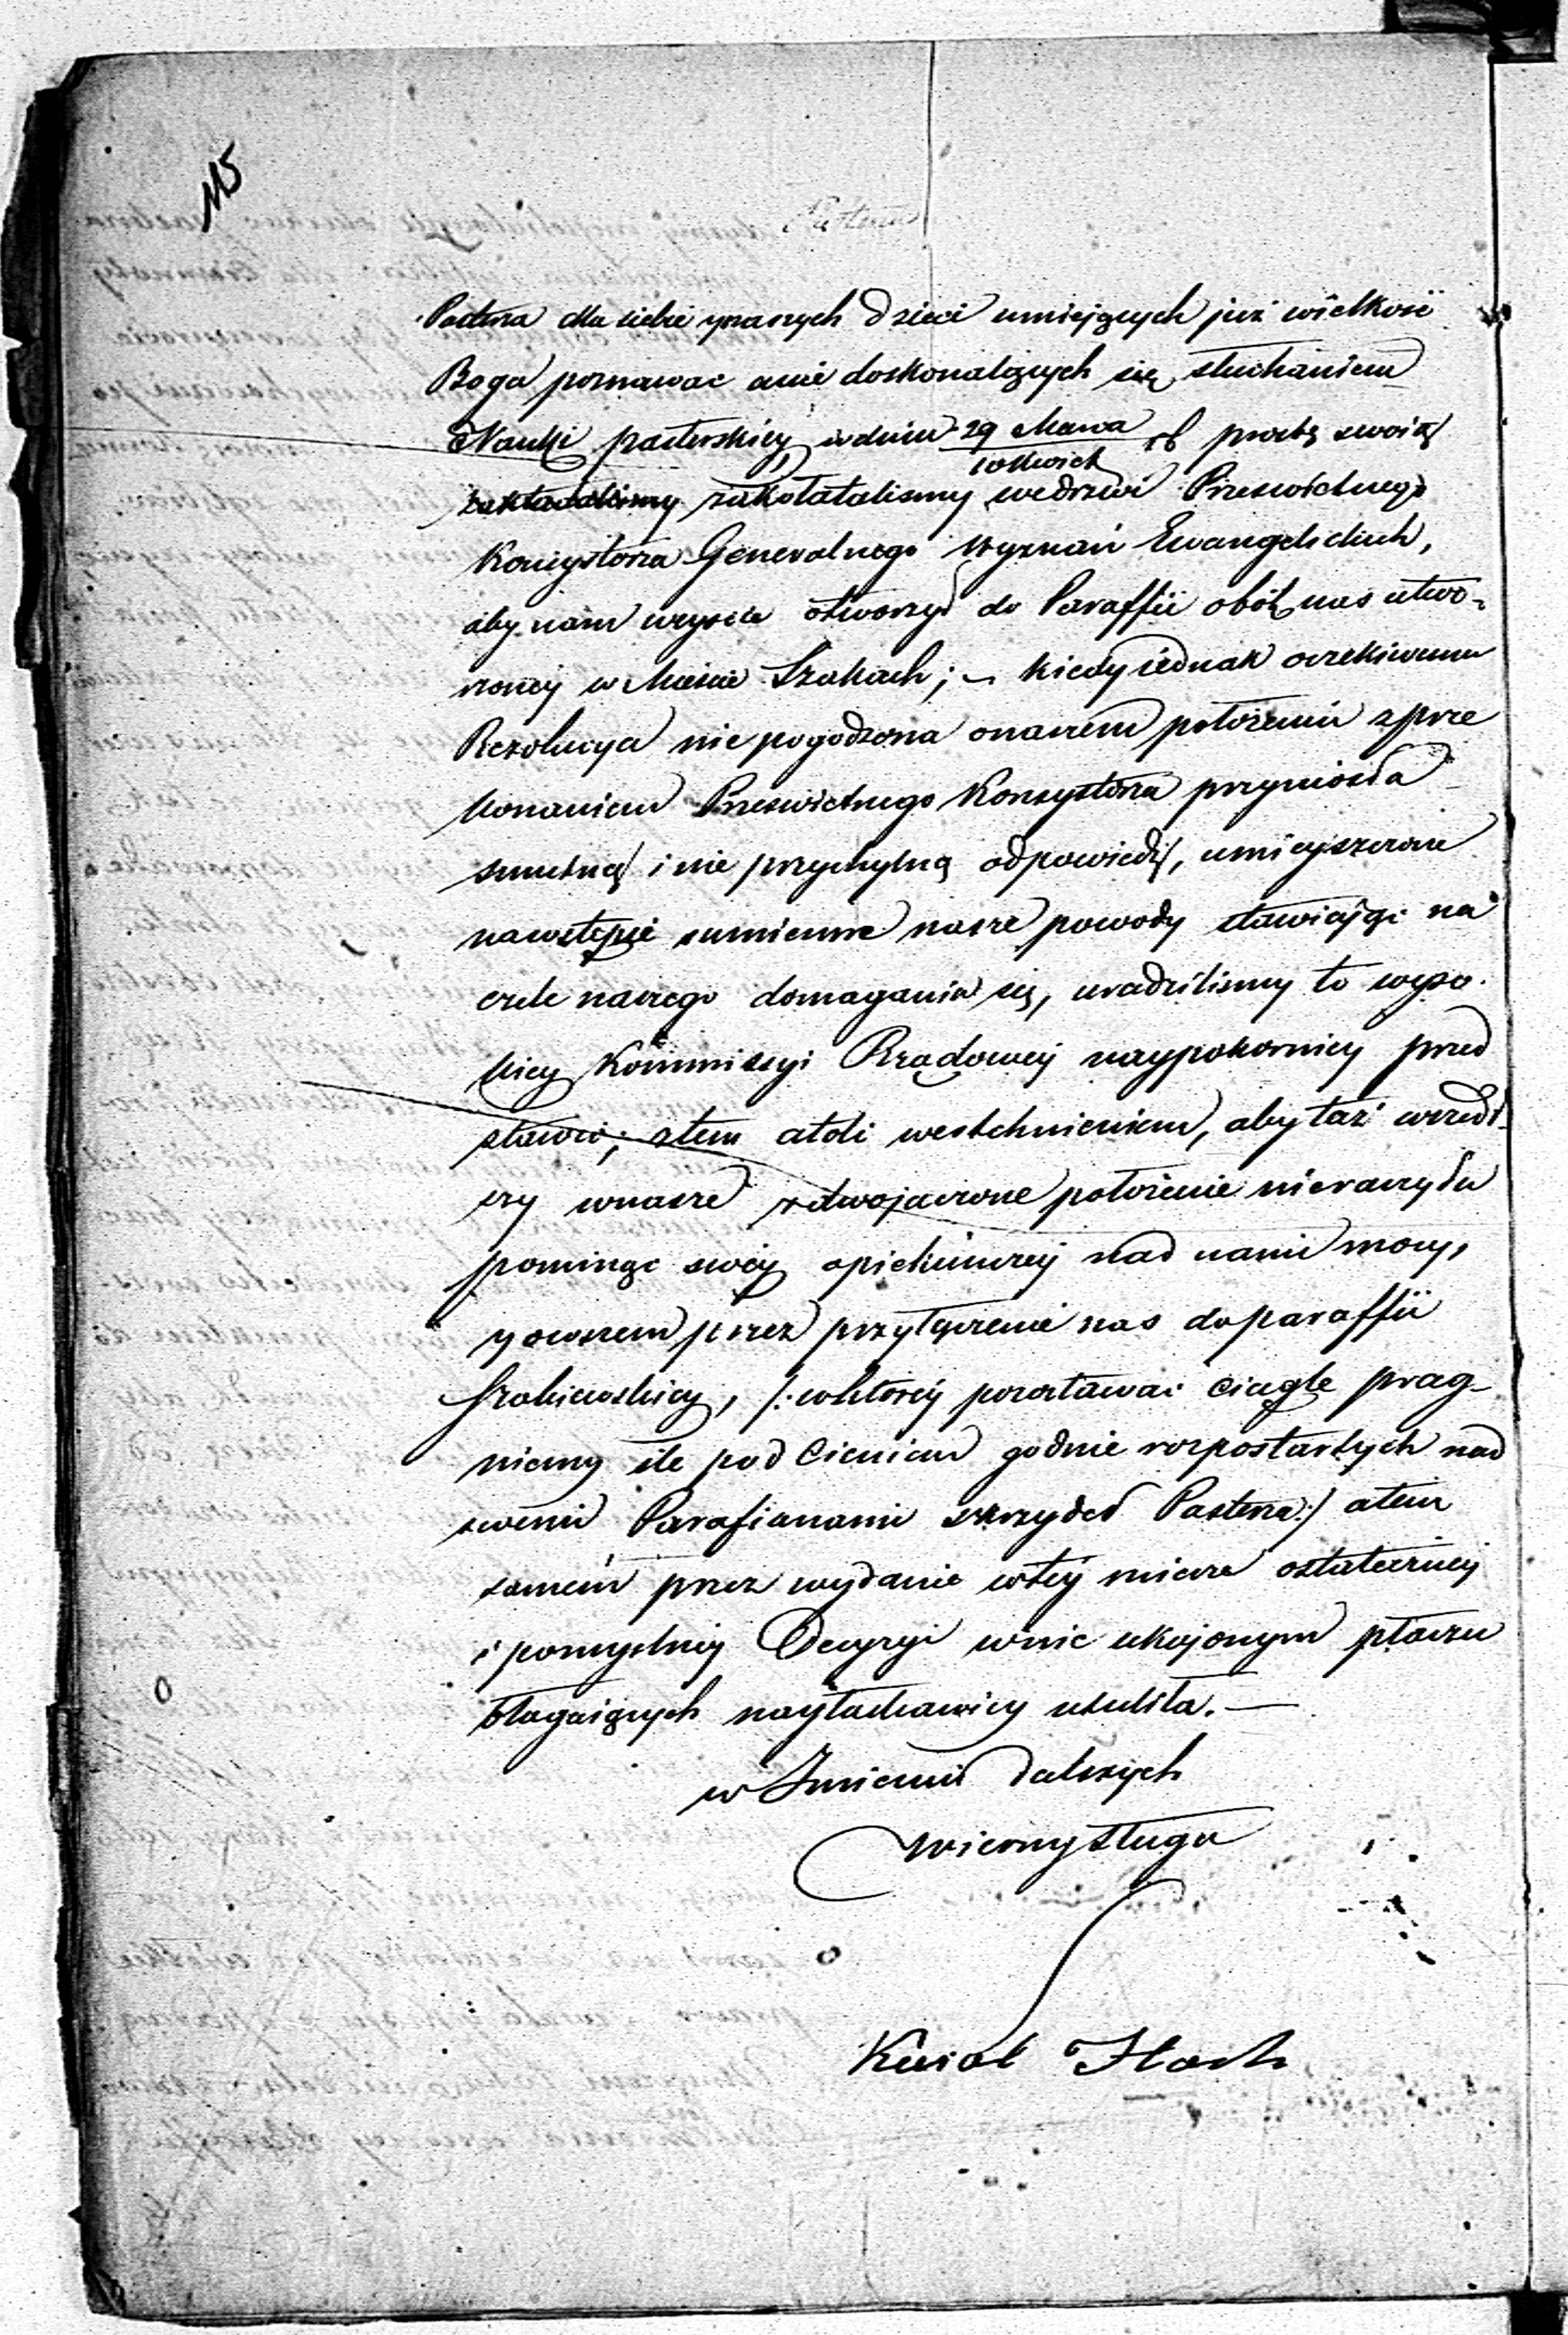 115
Pastera dla siebie y naszych Dzieci umiejących już wielkość
Boga poznawac a nie doskonalących się słuchaniem
Nauki pasterskiey, w dniu 29 Marca
10 Kwiet rb prozbą swoią
zakołatalismy we drzwi Prześwietnego
Konsystorza Generalnego Wyznań Ewangelickich,
aby nam weyscie otworzył do Paraffii obok nas utwo-
rzoney w Mieście Szakach; – kiedy iednak oczekiwana
Rezolucya nie pogodzona o naszem położeniu z prze
konaniem Prześwietnego Konsystorza przyniosła
smutną i nie przychylną odpowiedź, umieyszczone
na wstępie sumienne nasze powody stawiając na
czele naszego domagania się, uradzilismy to wyso-
kiey Kommissyi Rządowey naypokorniey przed
stawić; z tem atoli westchnieniem, aby taż wszedł-
szy w nasze położenie nieraczyła
pominąc swey opiekuńczey nad nami mocy,
y owszem przez przyłączenie nas do paraffii
Szakiewskiey, /: w ktorey pozostawac ciągle prag-
niemy ile pod Cieniem godnie rozpostartych nad
swemi Parafianami skrzydeł Pastera :/ a tem
samem przez wydanie w tey mierze ostateczney
i pomyslney Decyzyi w nie ukojonym płaczu
błagaiących nayłaskawiey utuliła. –
w Imieniu dalszych
Wierny Sługa